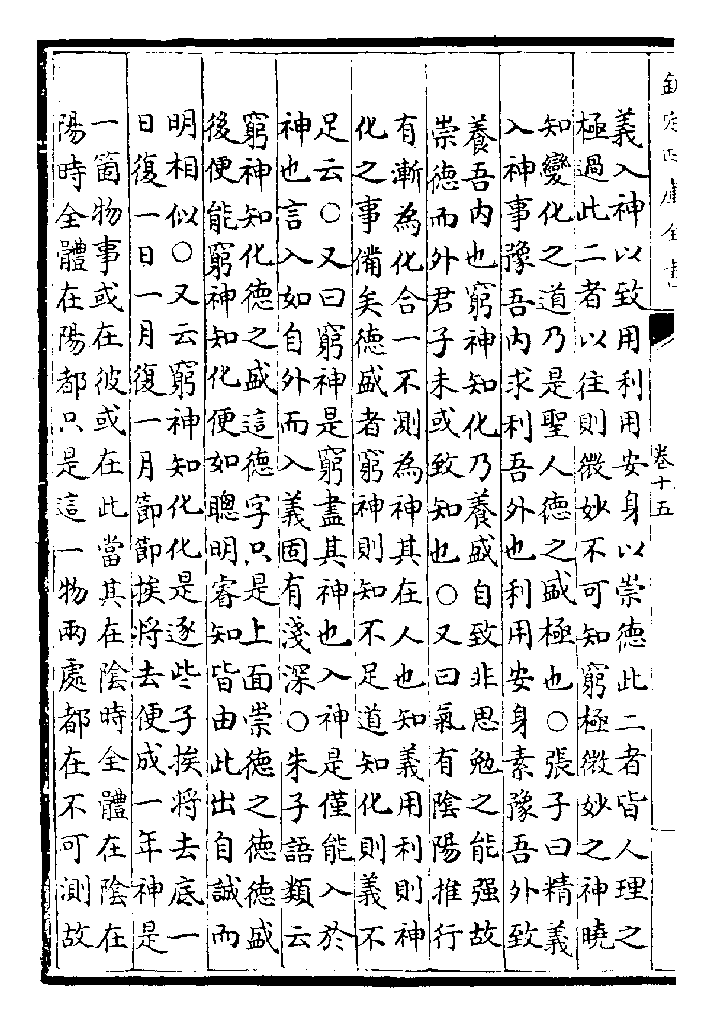 欽定四庫全書
卷十五
義入神以致用利用安身以崇德此二者皆人理之
極過此二者以往則微妙不可知窮極微妙之神曉
知變化之道乃是聖人德之盛極也○張子曰精義
入神事豫吾内求利吾外也利用安身素豫吾外致
養吾内也窮神知化乃養盛自致非思勉之能强故
崇德而外君子未或致知也○又曰氣有陰陽推行
有漸為化合一不測為神其在人也知義用利則神
化之事備矣德盛者窮神則知不足道知化則義不
足云○又曰窮神是窮盡其神也入神是僅能入於
神也言入如自外而入義固有淺深○朱子語類云
窮神知化德之盛這德字只是上面崇德之德德盛
後便能窮神知化便如聰明睿知皆由此出自誠而
明相似○又云窮神知化化是逐些子挨將去底一
日復一日一月復一月節節挨將去便成一年神是
一箇物事或在彼或在此當其在陰時全體在陰在
陽時全體在陽都只是這一物兩處都在不可測故